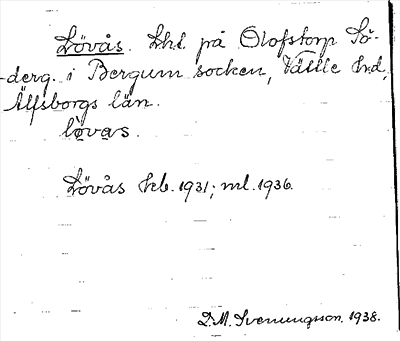 Lövås. Lht. på Olofstorp Sö-
derg. i Bergum socken, Vättle hrd,
Älfsborgs län.
lövas.
Lövås kb. 1931; ml. 1936.
D.M. Svenungsson. 1938.